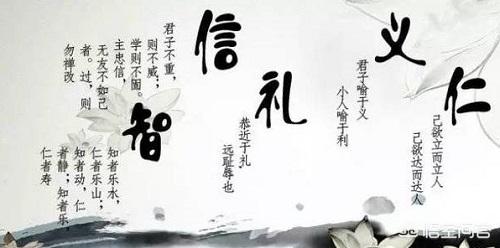 仁
己欲立而立人
己欲达而达人
义
君子喻于义
小人喻于利
礼
恭近于礼
远耻辱也
信
君子不重，
则不威，
学则不固。
主忠信，
无友不如己
者。过，则
勿禅改
智
知者乐水，
仁者乐山；
知者动，仁
者静；知者乐，
仁者寿
悟空问答